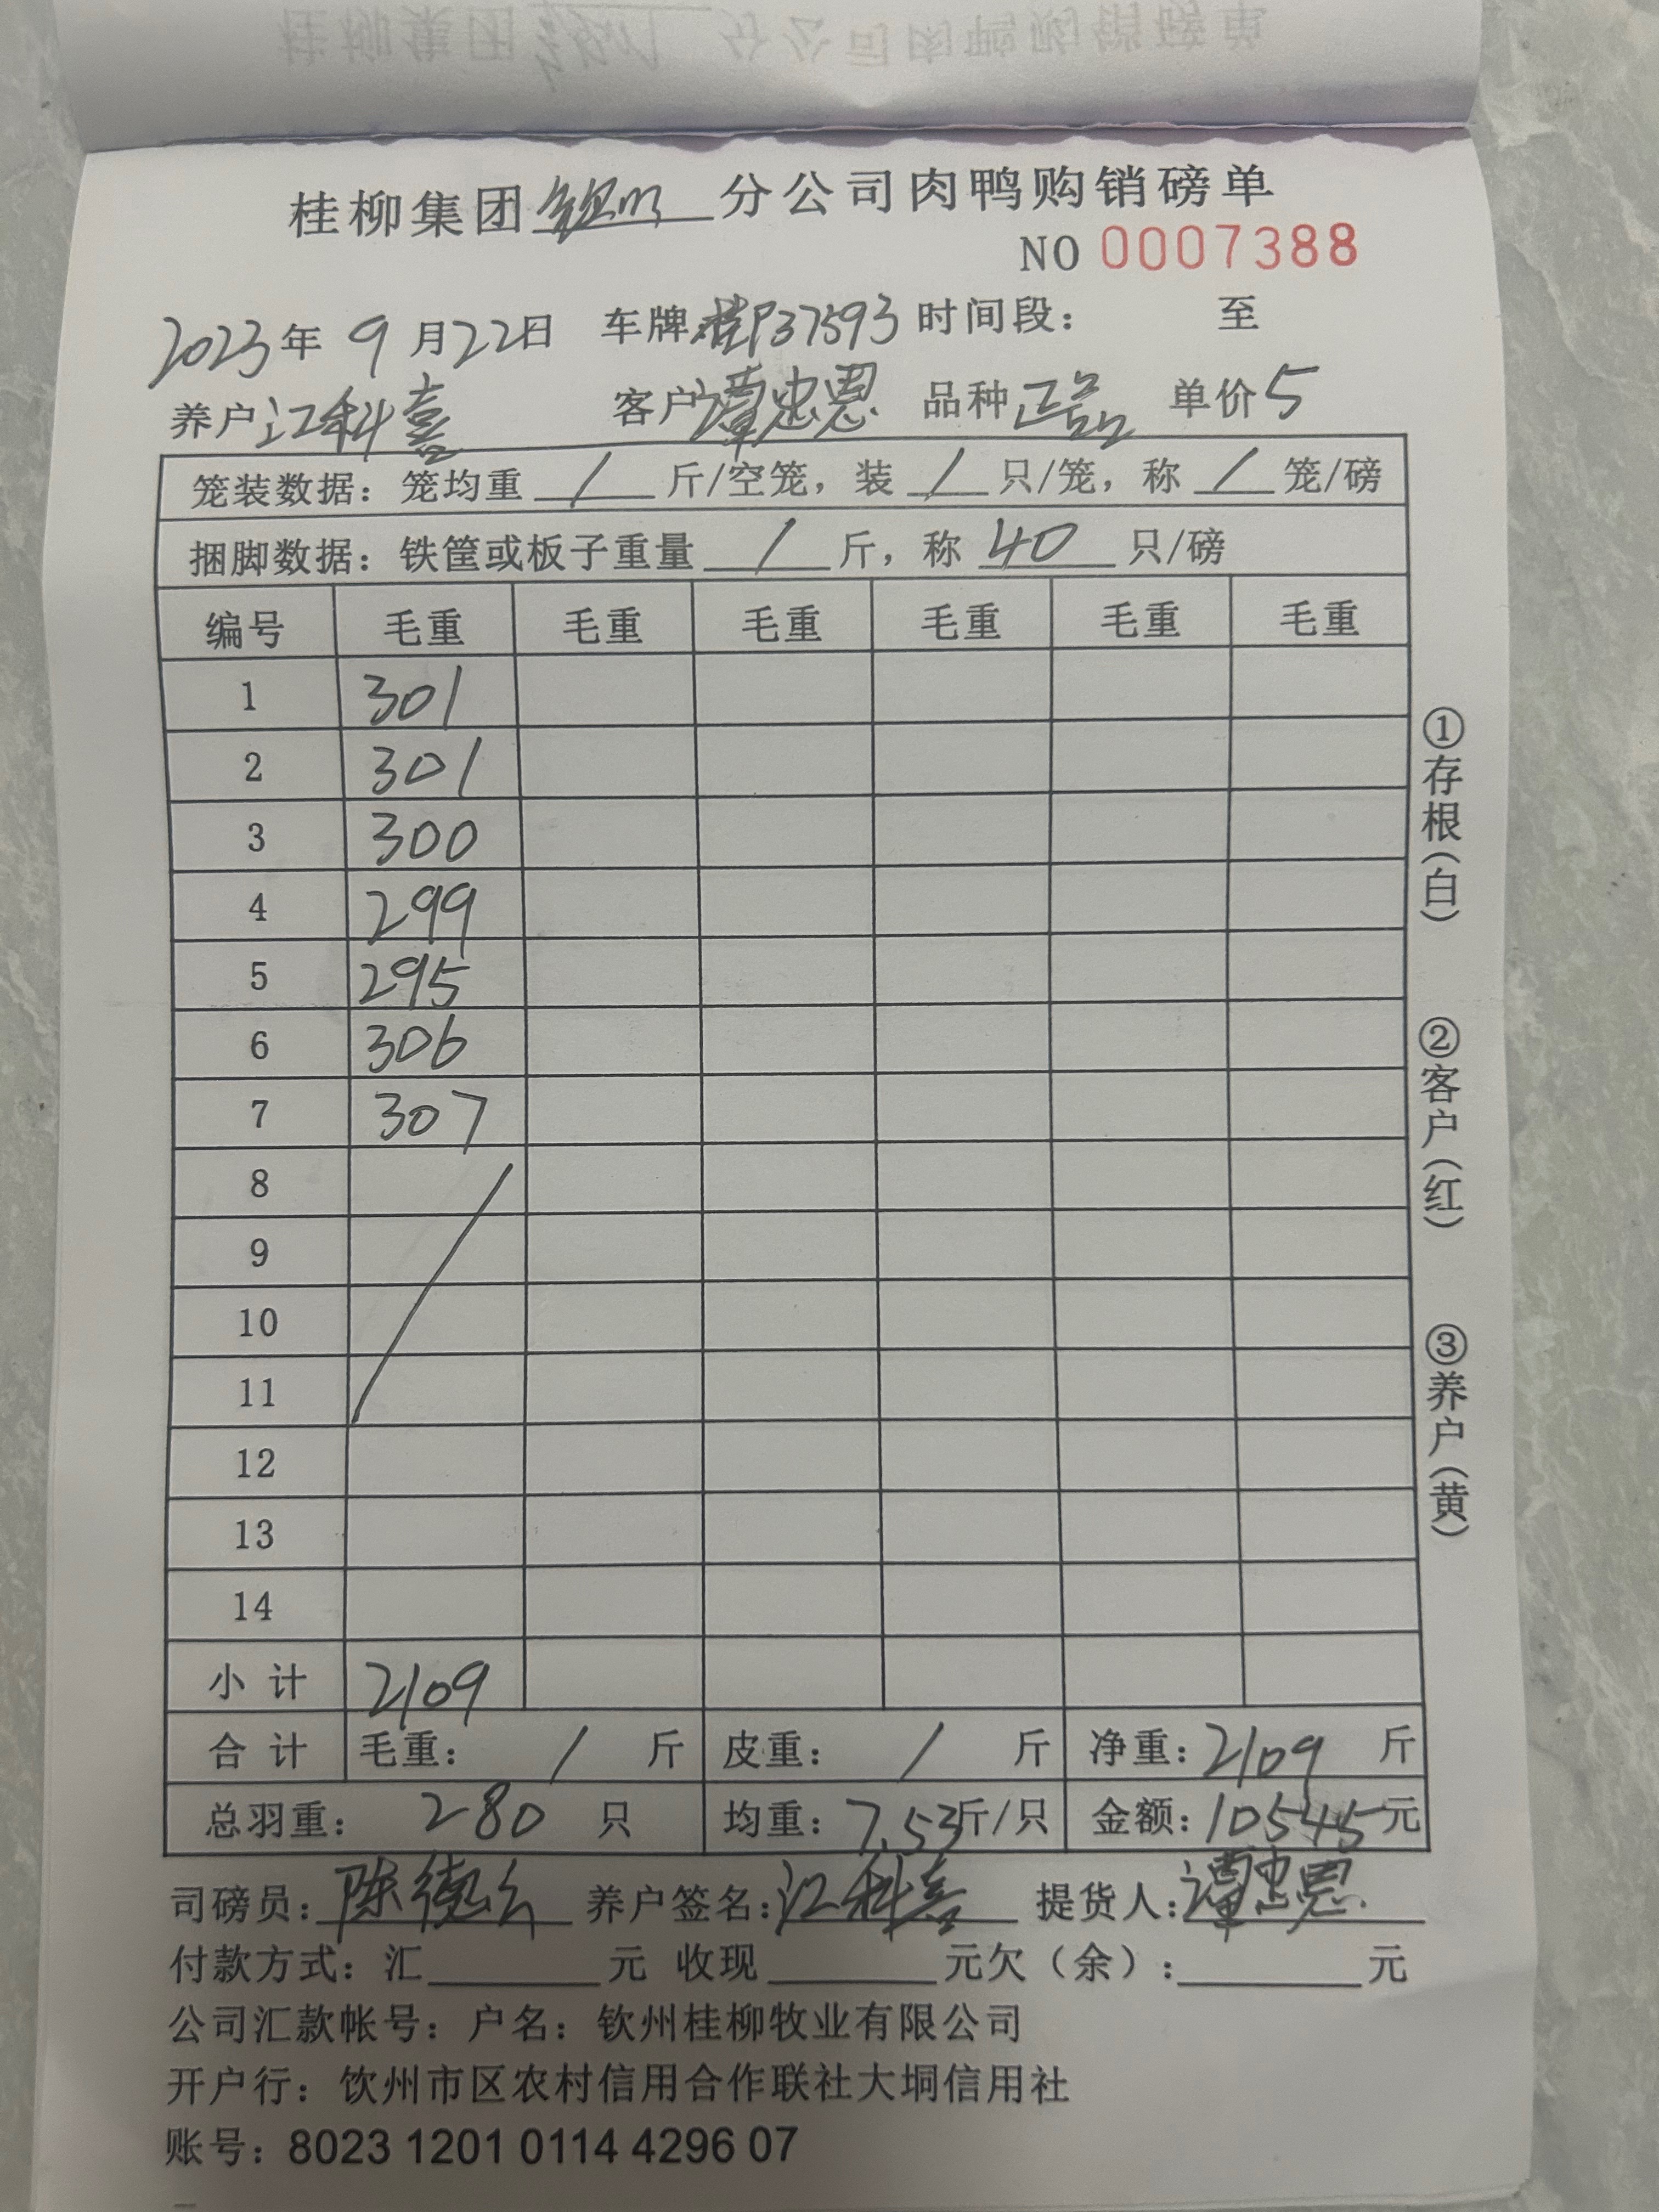 桂柳集团钦州分公司肉鸭购销磅单
NO 0007388
2023年 9 月22日 车牌:桂P37593 时间段: 至
养户 江科喜 客户 谭忠恩 品种 正品 单价 5
笼装数据: 笼均重 / 斤/空笼, 装 / 只/笼, 称 / 笼/磅
捆脚数据: 铁筐或板子重量 / 斤, 称 40 只/磅
编号 毛重 毛重 毛重 毛重 毛重 毛重
1 301
2 301
3 300
4 299
5 295
6 306
7 307
8
9
10
11
12
13
14
小 计 2109
合 计 毛重: / 斤 皮重: / 斤 净重: 2109 斤
总羽重: 280 只 均重: 7.53斤/只 金额: 10545元
司磅员: 陈德 养户签名: 江科喜 提货人: 谭忠恩
付款方式: 汇 元 收现 元欠(余): 元
公司汇款帐号: 户名: 钦州桂柳牧业有限公司
开户行: 饮州市区农村信用合作联社大垌信用社
账号: 8023 1201 0114 4296 07
①存根(白)
②客户(红)
③养户(黄)